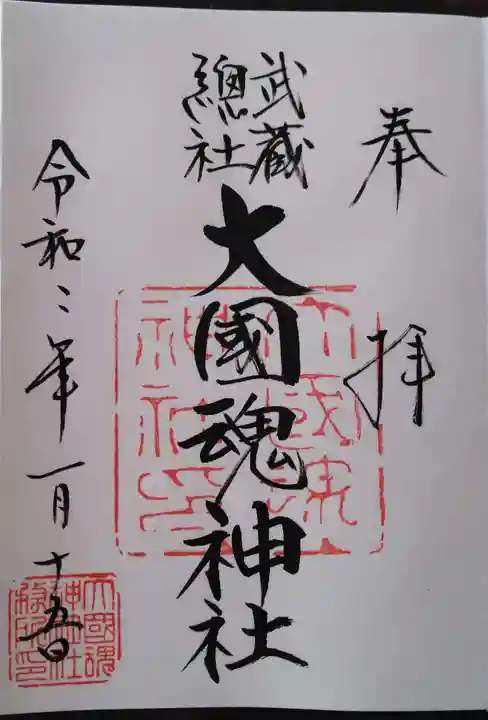 奉拝
武蔵
總社
大國魂神社
令和二年一月十五日
大國魂
神社